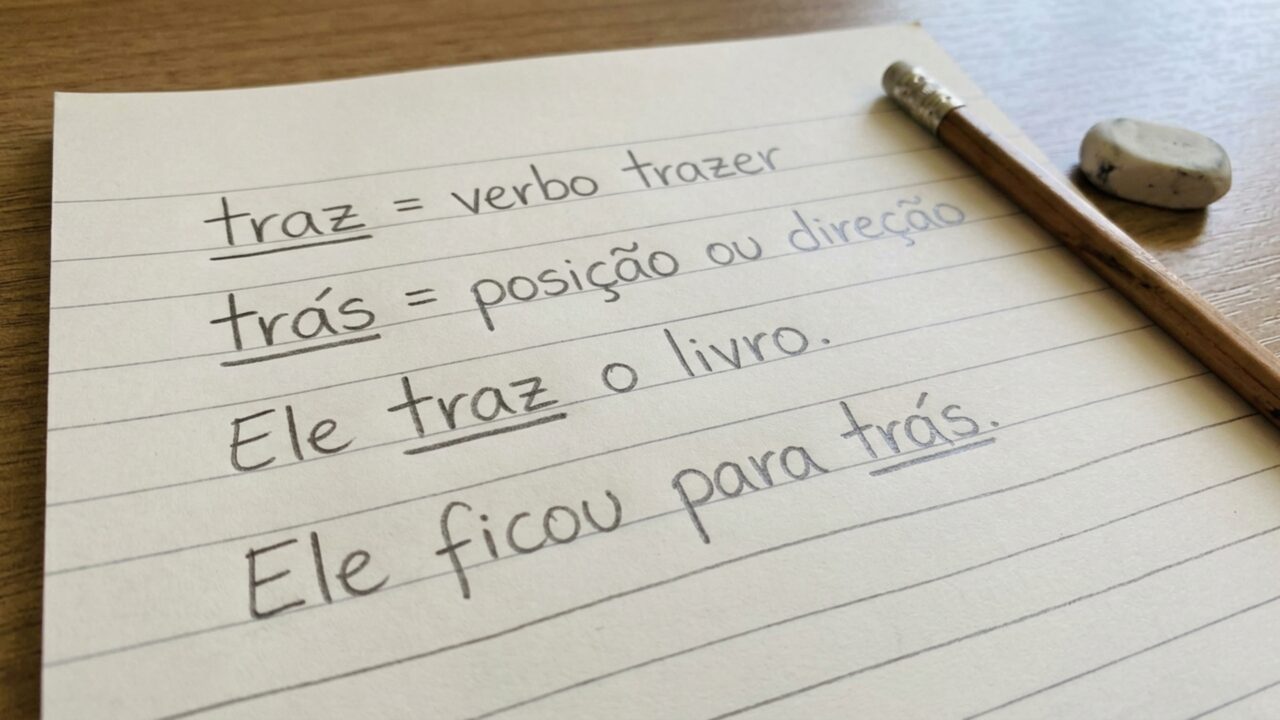 traz = verbo trazer
trás = posição ou direção
Ele traz o livro.
Ele ficou para trás.